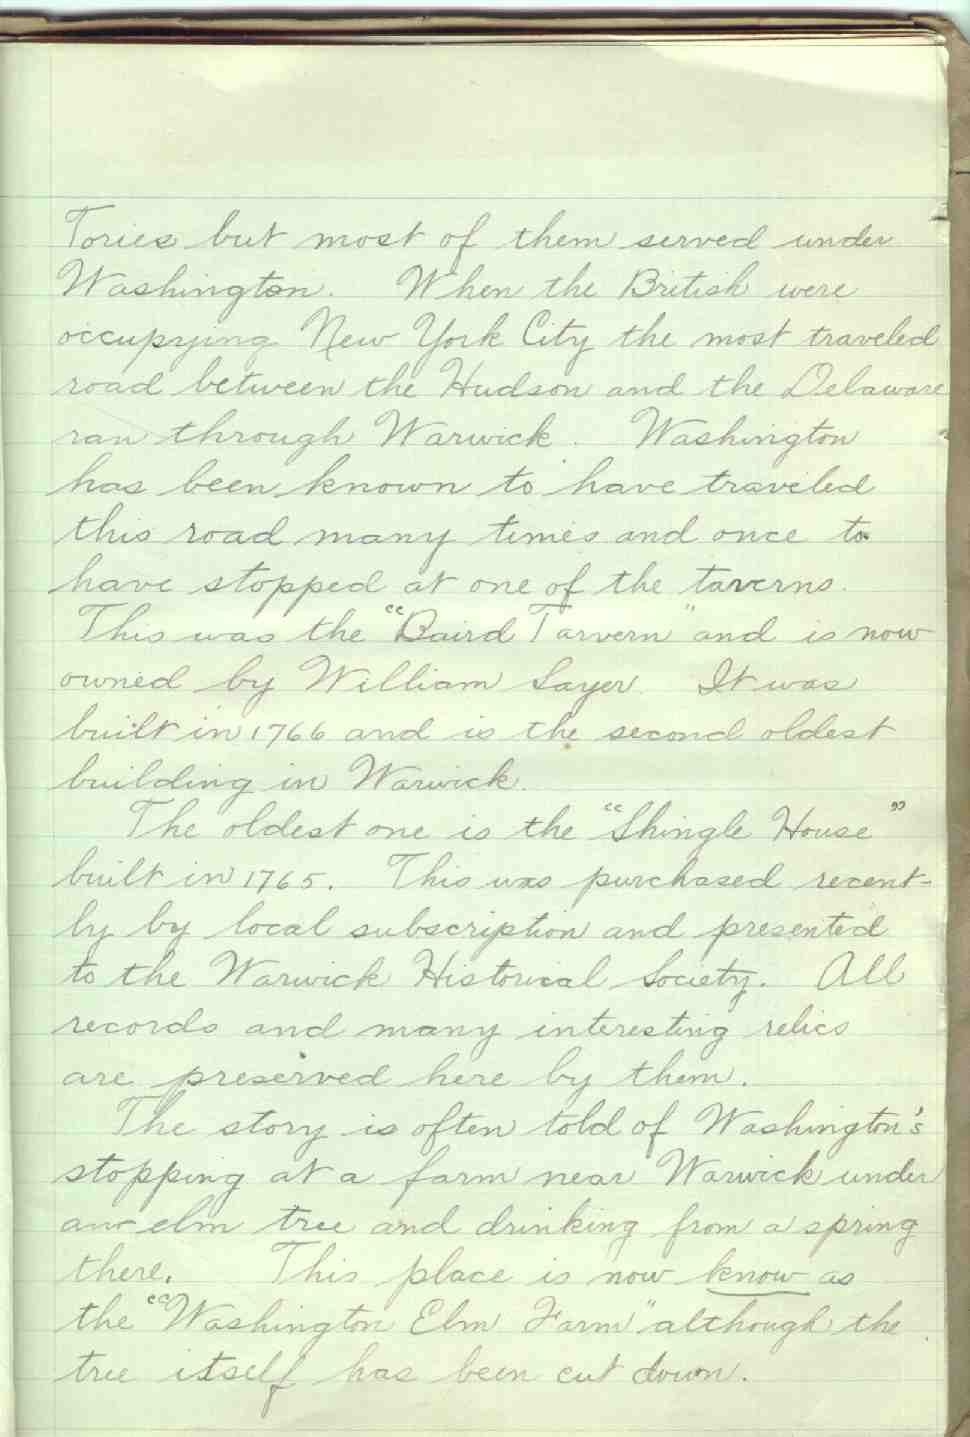 Tories but most of them served under
Washington. When the British were
occupying New York City the most traveled
road between the Hudson and the Delaware
ran through Warwick. Washington
has been known to have traveled
this road many times and once to
have stopped at one of the taverns.
This was the "Baird Tarvern" and is now
owned by William Sayer. It was
built in 1766 and is the second oldest
building in Warwick.
The oldest one is the "Shingle House"
built in 1765. This was purchased recent-
ly by local subscription and presented
to the Warwick Historical Society. All
records and many interesting relics
are preserved here by them.
The story is often told of Washington's
stopping at a farm near Warwick under
an elm tree and drinking from a spring
there. This place is now know as
the "Washington Elm Farm" although the
tree itself has been cut down.